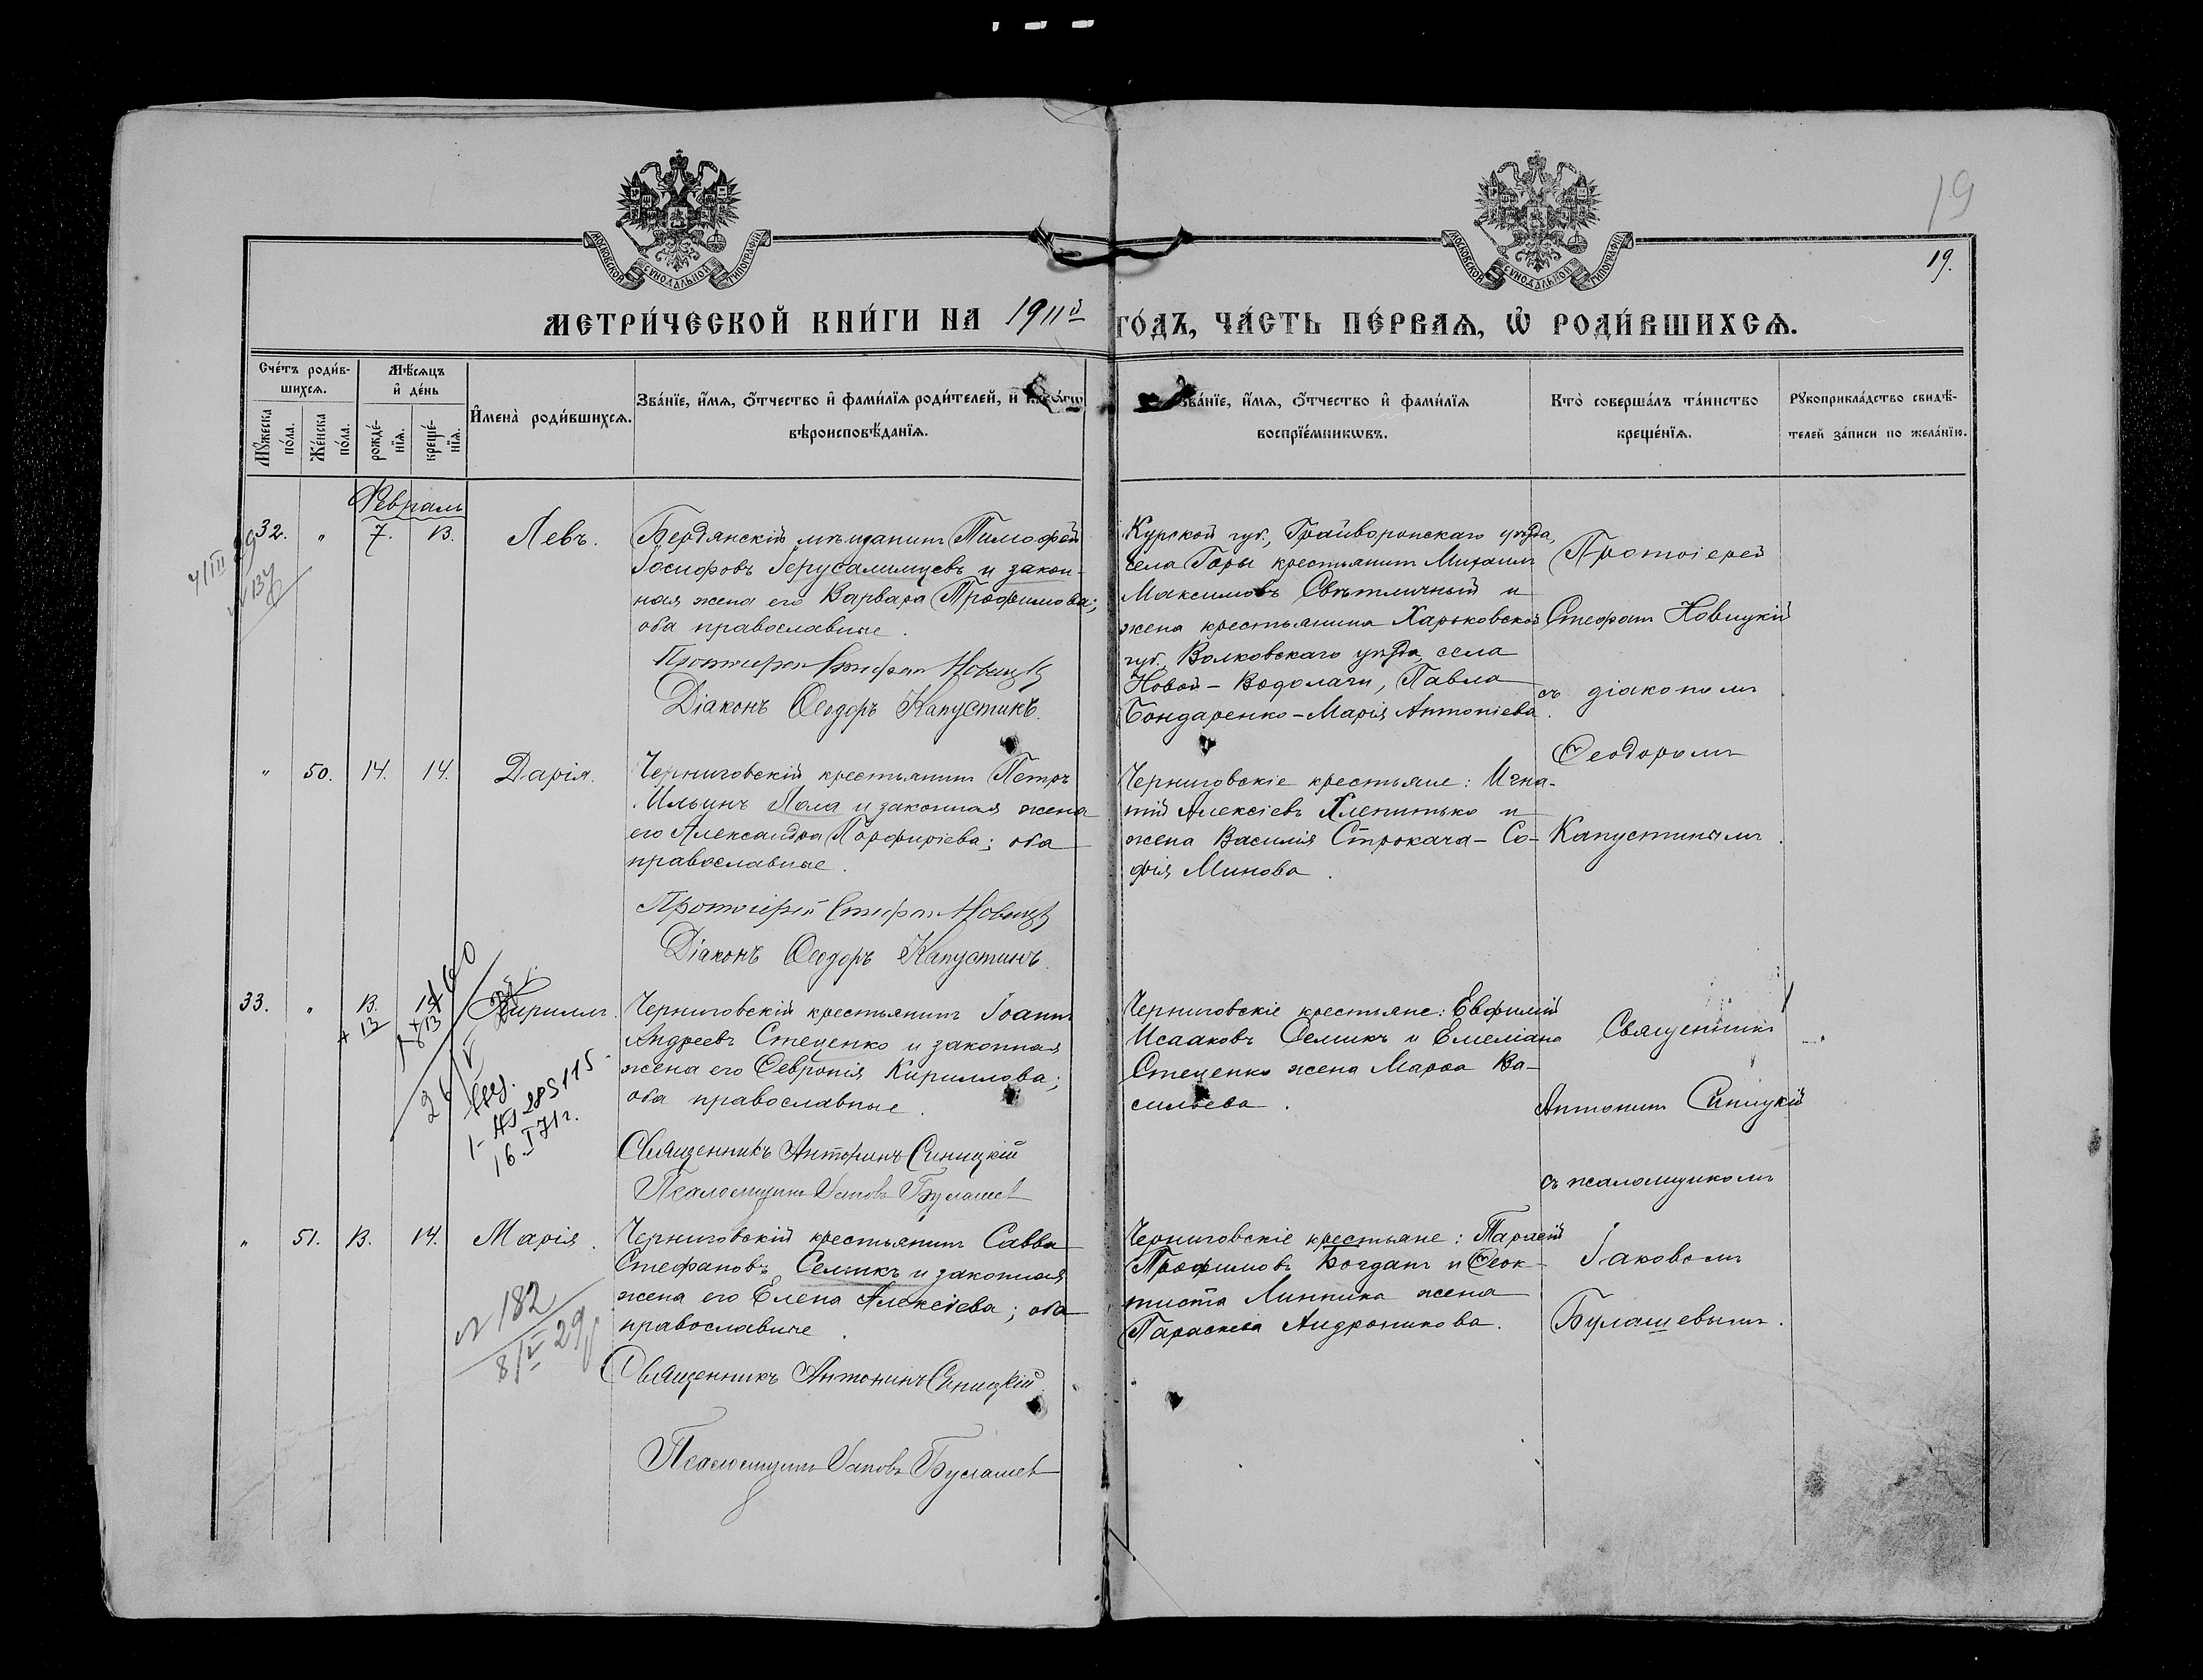 19
19.
МОСКОВСКОЙ СѴНОДАЛЬНОЙ ТИПОГРАФІИ
МОСКОВСКОЙ СѴНОДАЛЬНОЙ ТИПОГРАФІИ
МЕТРИ́ЧЕСКОЙ КНИ́ГИ НА 1911й ГО́ДЪ, ЧА́СТЬ ПЕ́РВАѦ, Ѡ҆ РОДИ́ВШИХСѦ.
Сче́тъ роди́в-
шихсѧ.
Мꙋ́жеска по́ла.
Же́нска по́ла.
Мѣ́сѧцъ
и҆ де́нь
рожде́-нїѧ.
креще́-нїѧ.
И҆мена̀ роди́вшихсѧ.
Зва́нїе, и҆́мѧ, ѻ҆́тчество и҆ фами́лїѧ роди́телей, и҆
вѣроисповѣ́данїѧ.
Зва́нїе, и҆́мѧ, ѻ҆́тчество и҆ фами́лїѧ
воспрїе́мникѡвъ.
Кто̀ соверша́лъ та́инство
креще́нїѧ.
Рꙋкоприкла́дство свидѣ́-
телей за́писи по жела́нїю.
Февраль
32. " 7. 13. Левъ.
Бердянскій мѣщанинъ Тимофей
Іосифовъ Іерусалимцевъ и закон-
ная жена его Варвара Трофимова;
оба православные.
Протоіерей Стефанъ Новицкій
Діаконъ Ѳеодоръ Капустинъ.
Курской губ., Грайворонскаго уѣзда,
села Горы крестьянинъ Михаилъ
Максимовъ Свѣтличный и
жена крестьянина Харьковской
губ., Волковскаго уѣзда, села
Новой-Водолаги, Павла
Бондаренко-Марія Антоніева.
Протоіерей
Стефанъ Новицкій
съ діакономъ
Ѳеодоромъ
Капустинымъ.
" 50. 14. 14. Дарія.
Черниговскій крестьянинъ Петръ
Ильинъ Лола и законная жена
его Александра Порфиріева; оба
православные.
Протоіерей Стефанъ Новицкій
Діаконъ Ѳеодоръ Капустинъ.
Черниговскіе крестьяне: Игна-
тій Алексіевъ Хлепитько и
жена Василія Строкача-Со-
фія Минова.
33. " 13. 14 Кириллъ.
+ 13
Черниговскій крестьянинъ Іоаннъ
Андреевъ Стеценко и законная
жена его Февронія Кириллова;
оба православные.
Священникъ Антонинъ Синицкій
Псаломщикъ Іаковъ Булашевъ
Черниговскіе крестьяне: Евфимій
Исааковъ Семикъ и Емеліана
Стеценко жена Марѳа Ва-
сильева.
Священникъ
Антонинъ Синицкій
съ псаломщикомъ
Іаковомъ
Булашевымъ.
285115
16.I 71г.
" 51. 13. 14. Марія.
Черниговскій крестьянинъ Савва
Стефановъ Семикъ и законная
жена его Елена Алексіева; оба
православные.
Священникъ Антонинъ Синицкій
Псаломщикъ Іаковъ Булашевъ
Черниговскіе крестьяне: Тарасій
Трофимовъ Богданъ и Ѳеок-
тиста Линника жена
Параскева Андроникова.
№ 182
8/V 29